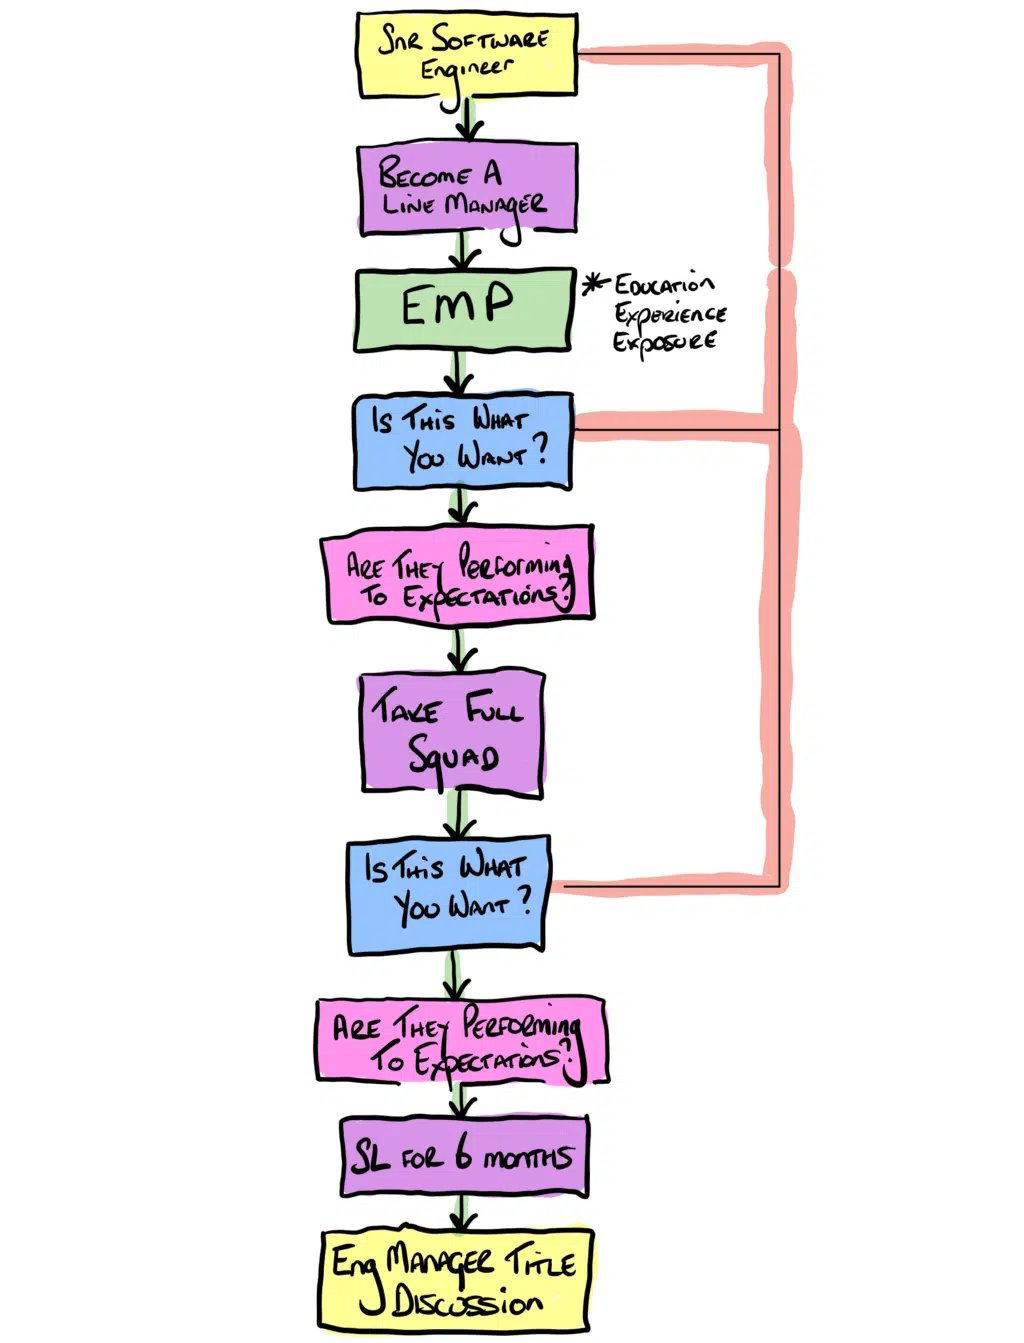 Snr Software
Engineer
Become A
Line Manager
EMP
* Education
Experience
Exposure
Is This What
You Want?
Are They Performing
To Expectations?
Take Full
Squad
Is This What
You Want?
Are They Performing
To Expectations?
SL for 6 months
Eng Manager Title
Discussion